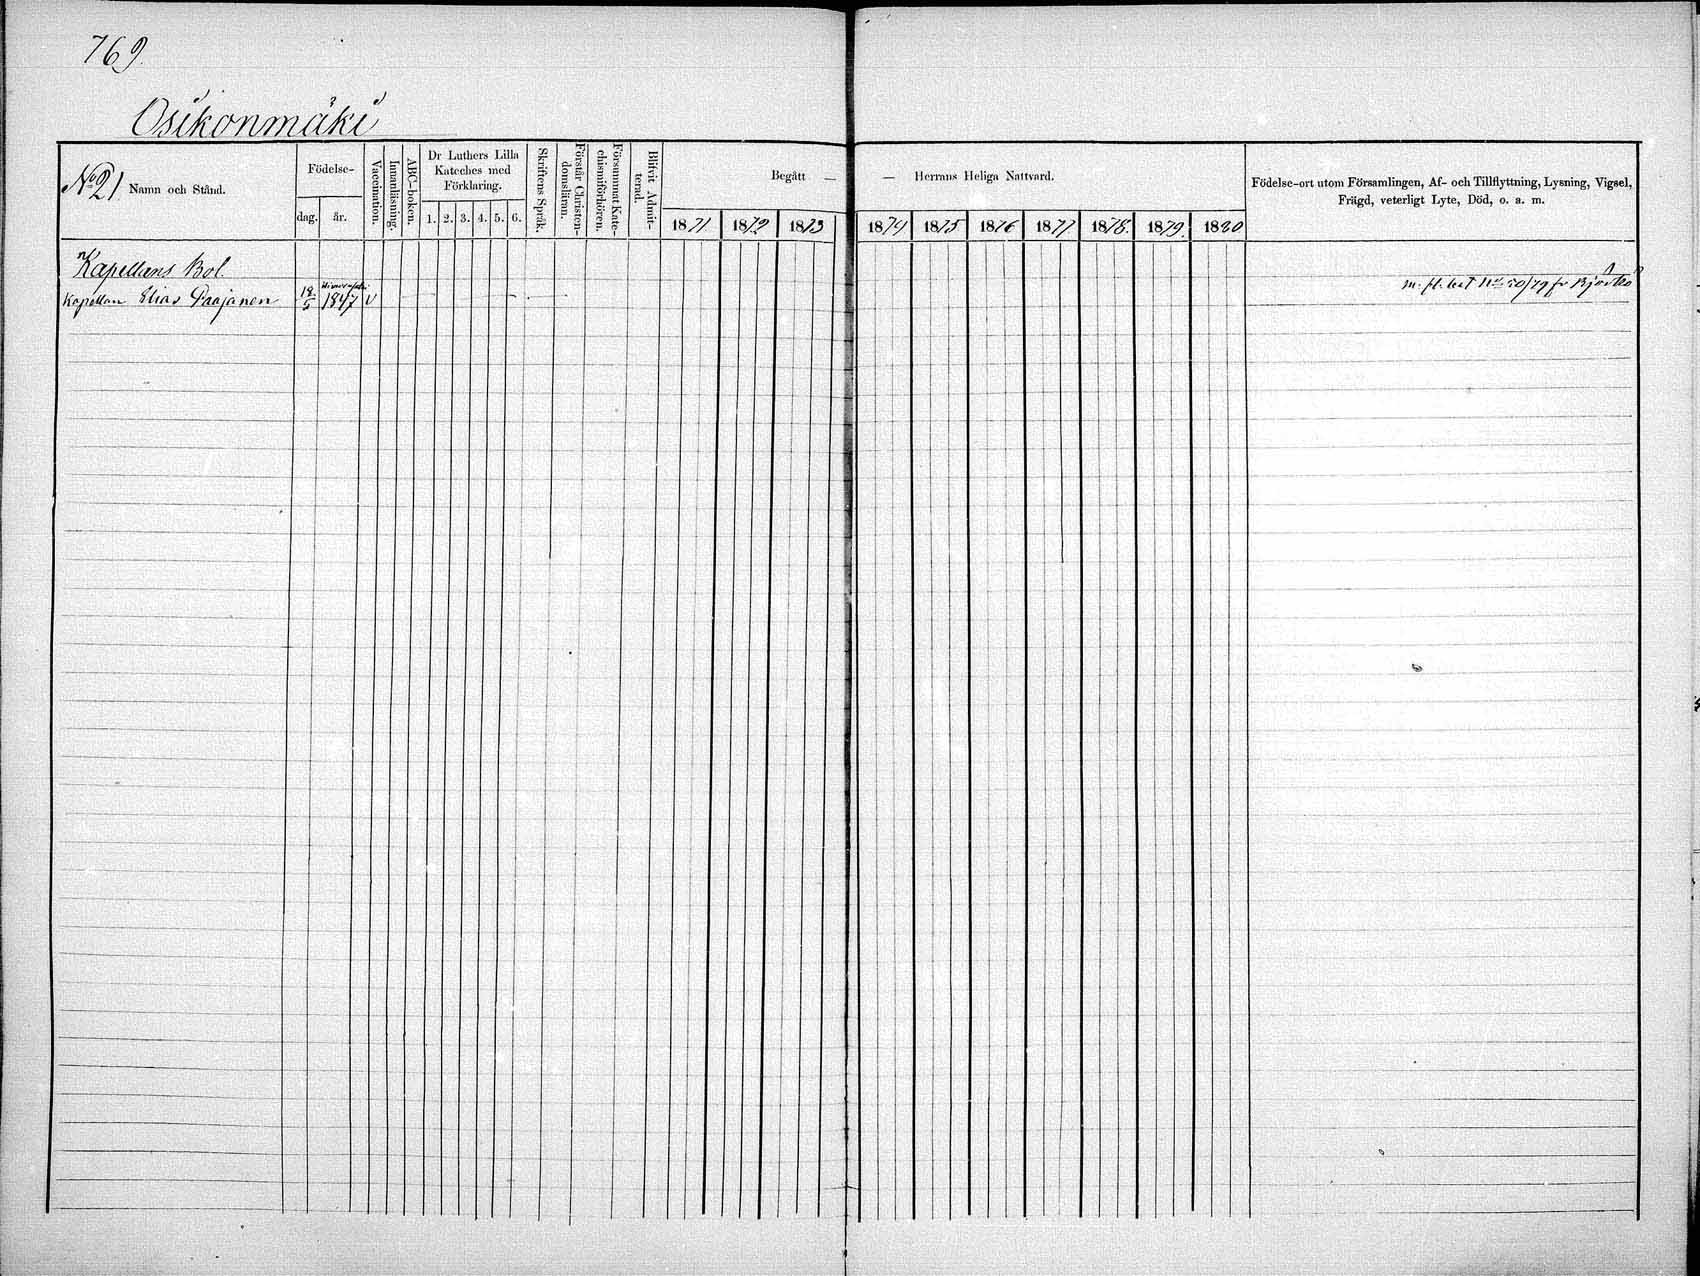 769.
Osikonmäki
No 21. Namn och Stånd.
Födelse-
dag. år.
Vaccination.
Innanläsning.
ABC-boken.
Dr Luthers Lilla
Kateches med
Förklaring.
1. 2. 3. 4. 5. 6.
Skriftens Språk.
Förstår Christen-
domsläran.
Försammat Kate-
chismiförhören.
Blifvit Admit-
terad.
Begått — — Herrans Heliga Nattvard.
1871 1872 1873 1874 1875 1876 1877 1878. 1879. 1880
Födelse-ort utom Församlingen, Af- och Tillflyttning, Lysning, Vigsel,
Frägd, veterligt Lyte, Död, o. a. m.
Kapellans Bol.
Kapellan Elias Paajanen 18/5 1847 v m. fl. bet. No 50/79 fr Björkö